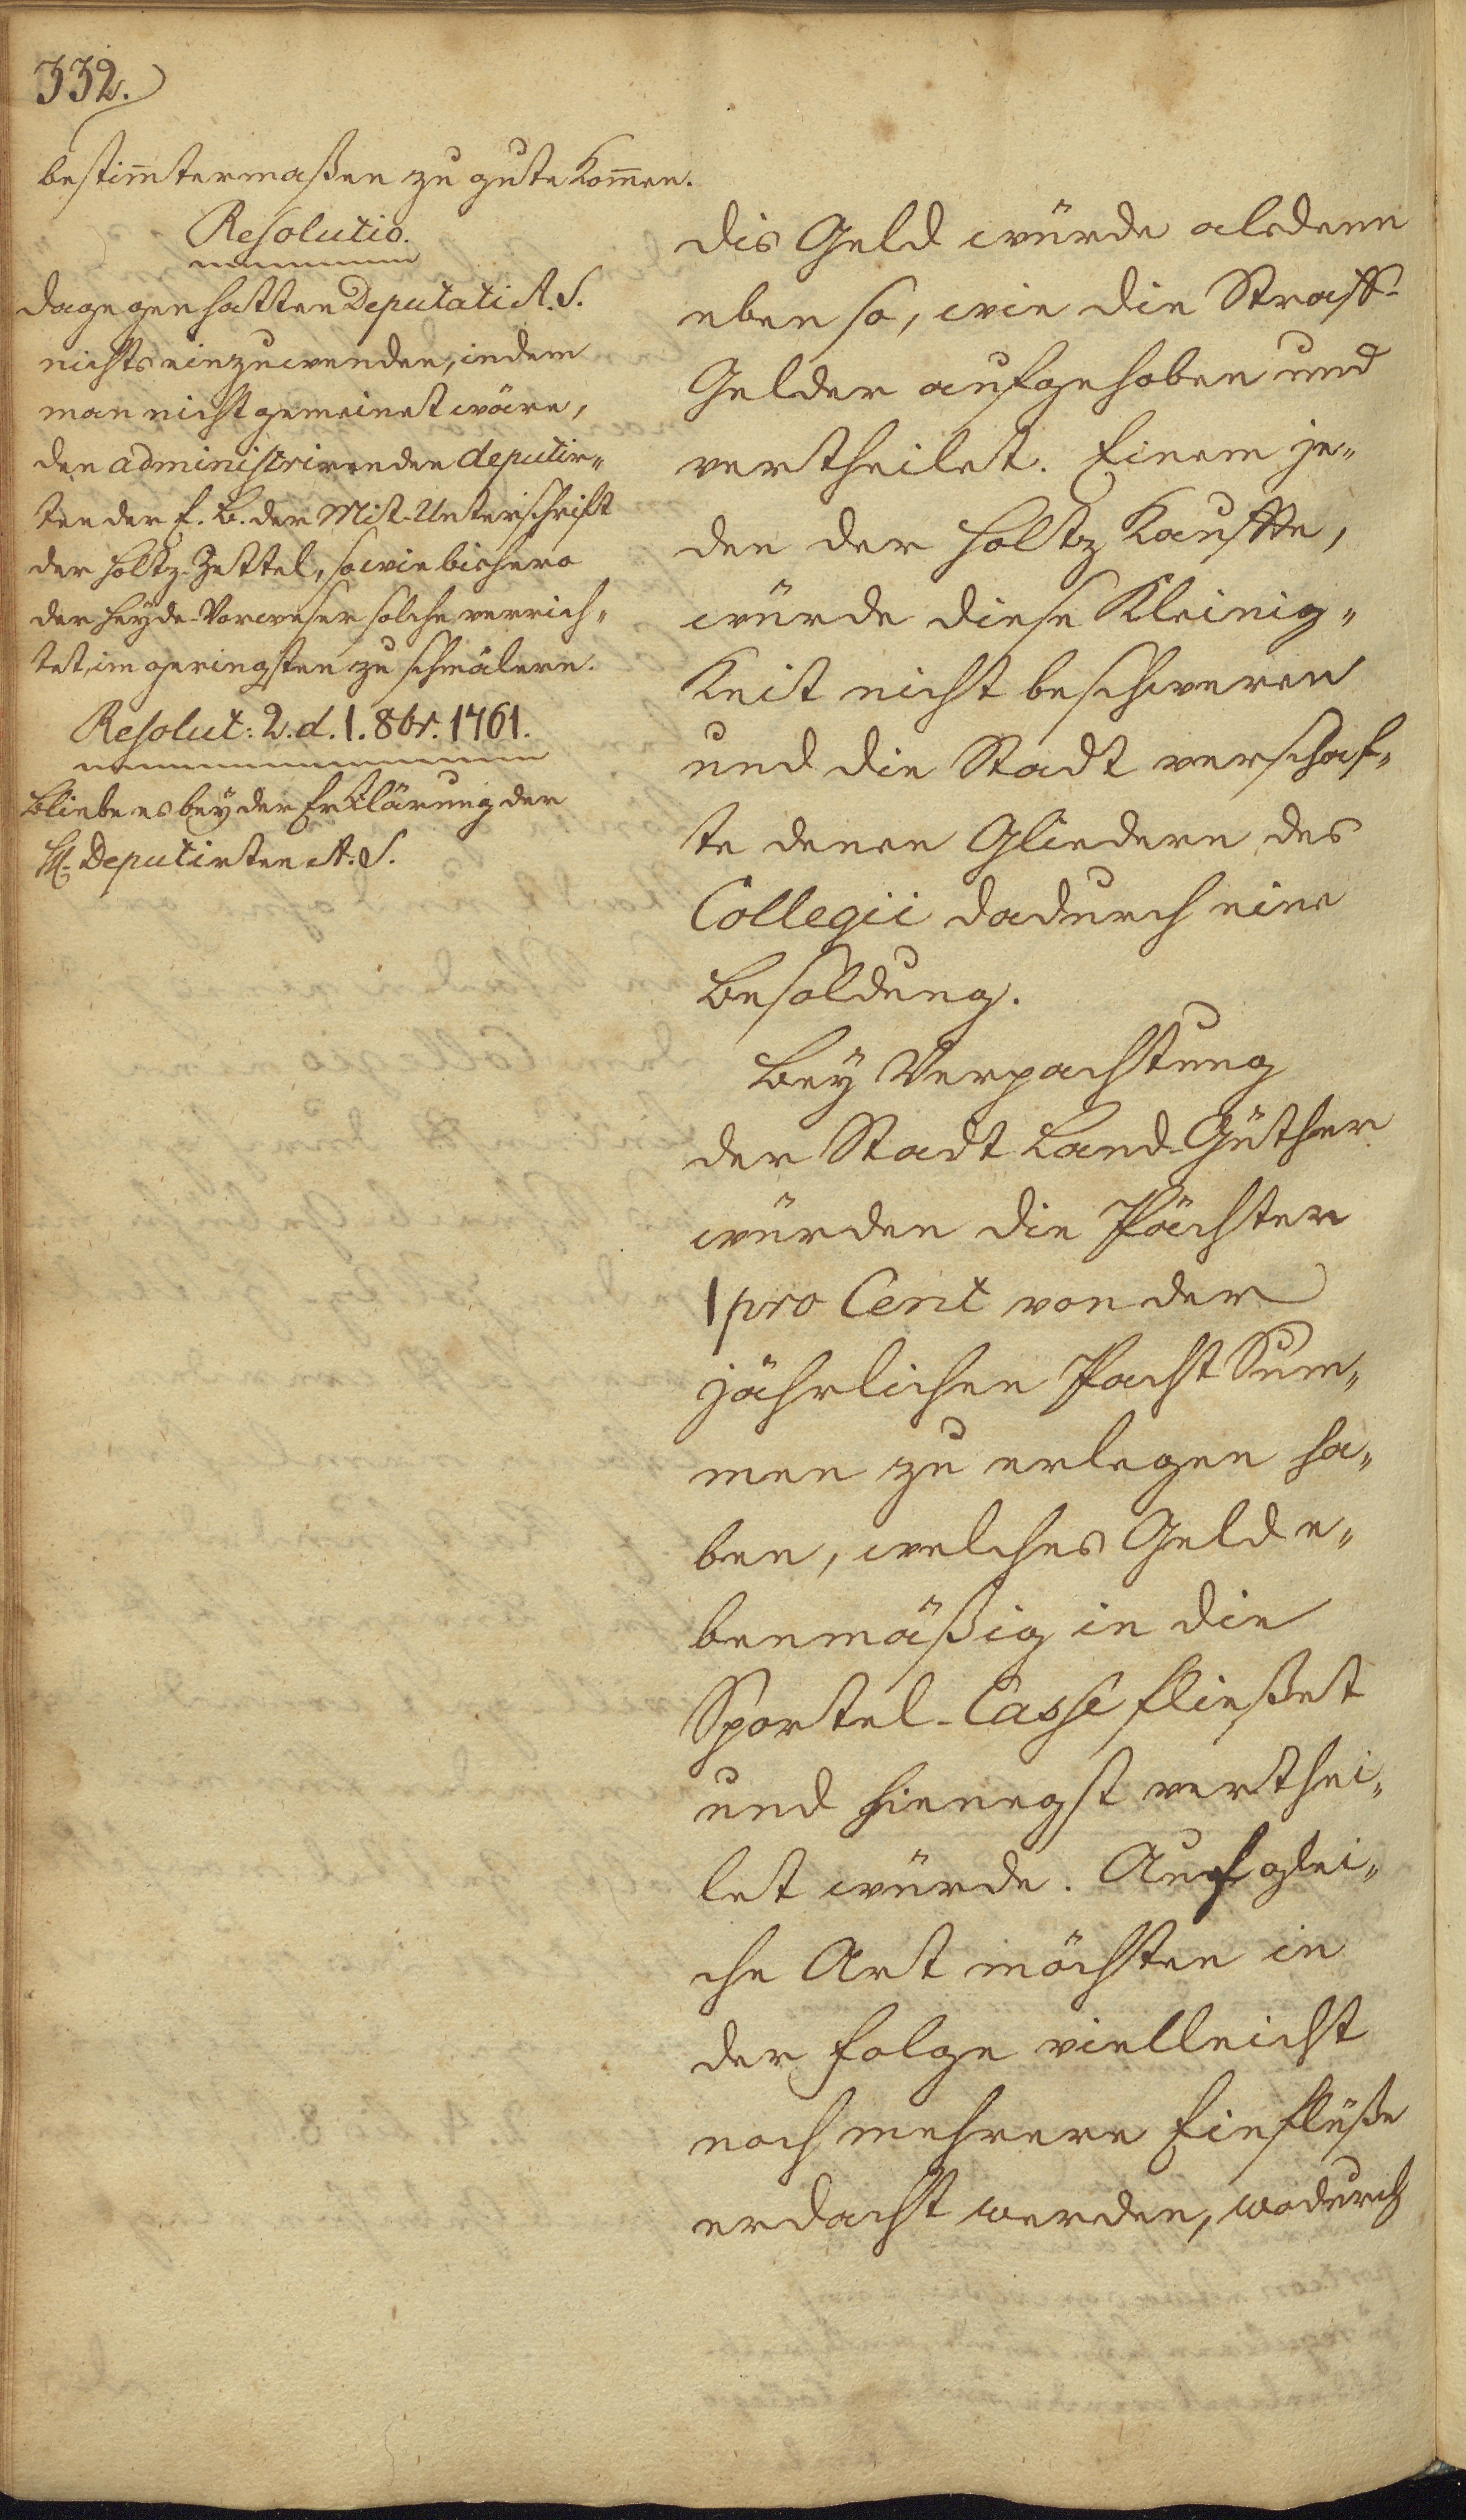 332.
bestim̄termaßen zu gute kom̄en.
Resolutio.
dagegen hatten Deputati A. S.
nichts einzuwenden, indem
man nicht gemeinet wäre,
den administrirenden deputir„
ten der E. B. der Mit-Unterschrift
der Holtz-Zettel, so wie bishero
der Heyde-Vorweser solche verrich„
tet, im geringsten zu schmälern.
Resolut: 2. d. 1. 8br. 1761.
Bliebe es bey der Erklärung der
H. Deputirten A. S.
dis Geld würde alsdenn
eben so, wie die Straff-
Gelder aufgehoben und
vertheilet. Einem je„
den der Holtz kauffte,
würde diese Kleinig„
keit nicht beschweren
und die Stadt verschaf„
te denen Gliedern des
Collegii dadurch eine
Besoldung.
Bey Verpachtung
der Stadt Land-Güther
würden die Pächter
1 pro Cent von der
jährlichen Pacht Sum„
men zu erlegen ha„
ben, welches Geld e„
benmäßig in die
Sportel-Casse fließet
und hienegst verthei„
let würde. Auf glei„
che Art möchten in
der Folge vielleicht
noch mehrere Einflüße
erdacht werden, wodurch